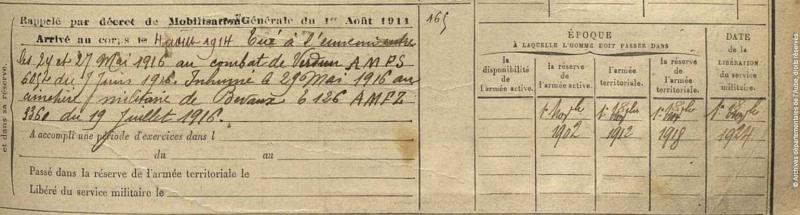 Rappelé par décret de Mobilisation Générale du 1er Août 1914
Arrivé au corps le 4 aout 1914 Tué à l'ennemi entre
les 24 et 27 Mai 1916 au combat de Verdun A M P S
du 7 Juin 1916. Inhumé le 29 Mai 1916 au
cimetière militaire de Bevaux 6126 A M F Z
3360 du 19 Juillet 1916.
A accompli une période d'exercices dans l
du au
Passé dans la réserve de l'armée territoriale le
Libéré du service militaire le
et dans sa réserve.
165
ÉPOQUE
À LAQUELLE L'HOMME DOIT PASSER DANS
la disponibilité de l'armée active.
la réserve de l'armée active.
l'armée territoriale.
la réserve de l'armée territoriale.
DATE DE LA LIBÉRATION du service militaire.
1er Nov bre 1902
1er Nov bre 1912
1er Nov bre 1918
1er Nov bre 1924
© Archives départementales de l'Aube, droits réservés